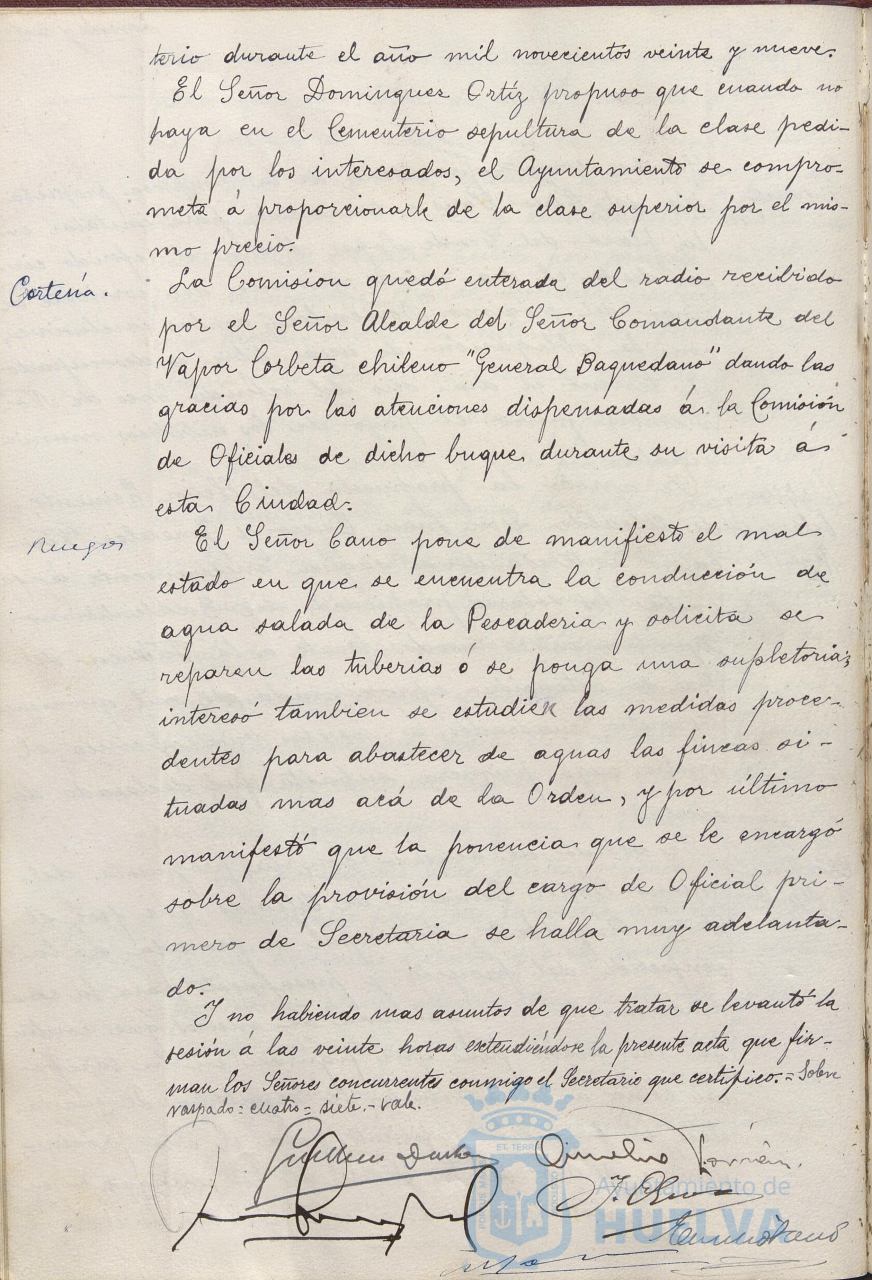 terio durante el año mil novecientos veinte y nueve.
El Señor Dominguez Ortíz propuso que cuando no
haya en el Cementerio sepultura de la clase pedi-
da por los interesados, el Ayuntamiento se compro-
meta á proporcionarle de la clase superior por el mis-
mo precio.
Cortesía.
La Comision quedó enterada del radio recibido
por el Señor Alcalde del Señor Comandante del
Vapor Corbeta chileno "General Baquedano" dando las
gracias por las atenciones dispensadas á la Comisión
de Oficiales de dicho buque durante su visita á
esta Ciudad.
Ruegos
El Señor Cano pone de manifiesto el mal
estado en que se encuentra la conducción de
agua salada de la Pescaderia y solicita se
reparen las tuberias ó se ponga una supletoria;
interesó tambien se estudien las medidas proce-
dentes para abastecer de aguas las fincas si-
tuadas mas acá de la Orden, y por último
manifestó que la ponencia que se le encargó
sobre la provisión del cargo de Oficial pri-
mero de Secretaria se halla muy adelanta-
do.
Y no habiendo mas asuntos de que tratar se levantó la
sesión á las veinte horas extendiéndose la presente acta que fir-
man los Señores concurrentes conmigo el Secretario que certifico.= Sobre
raspado = cuatro = siete.- vale.
ET TERRÆ
Ayuntamiento de
HUELVA